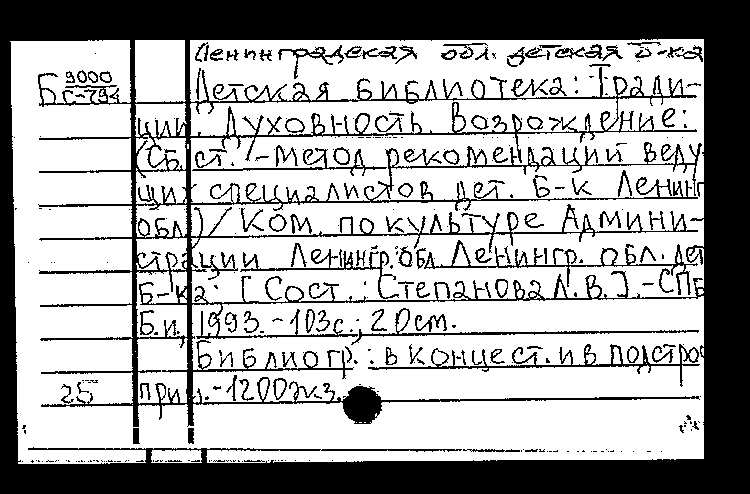 Ленинградская обл. детская б-ка
Б 9000
С-794
Детская библиотека: Тради-
ции. Духовность. Возрождение:
(Сб. ст. - метод рекомендаций веду
щих специалистов дет. Б-к Ленинг
обл.) / Ком. по культуре Админи-
страции Ленингр. обл. Ленингр. обл. дет
Б-ка; [Сост.: Степанова Л.В.]. - СПб
Б.и, 1993. - 103с.; 20см.
Библиогр.: в конце ст. и в подстро
25 прим. - 1200экз.